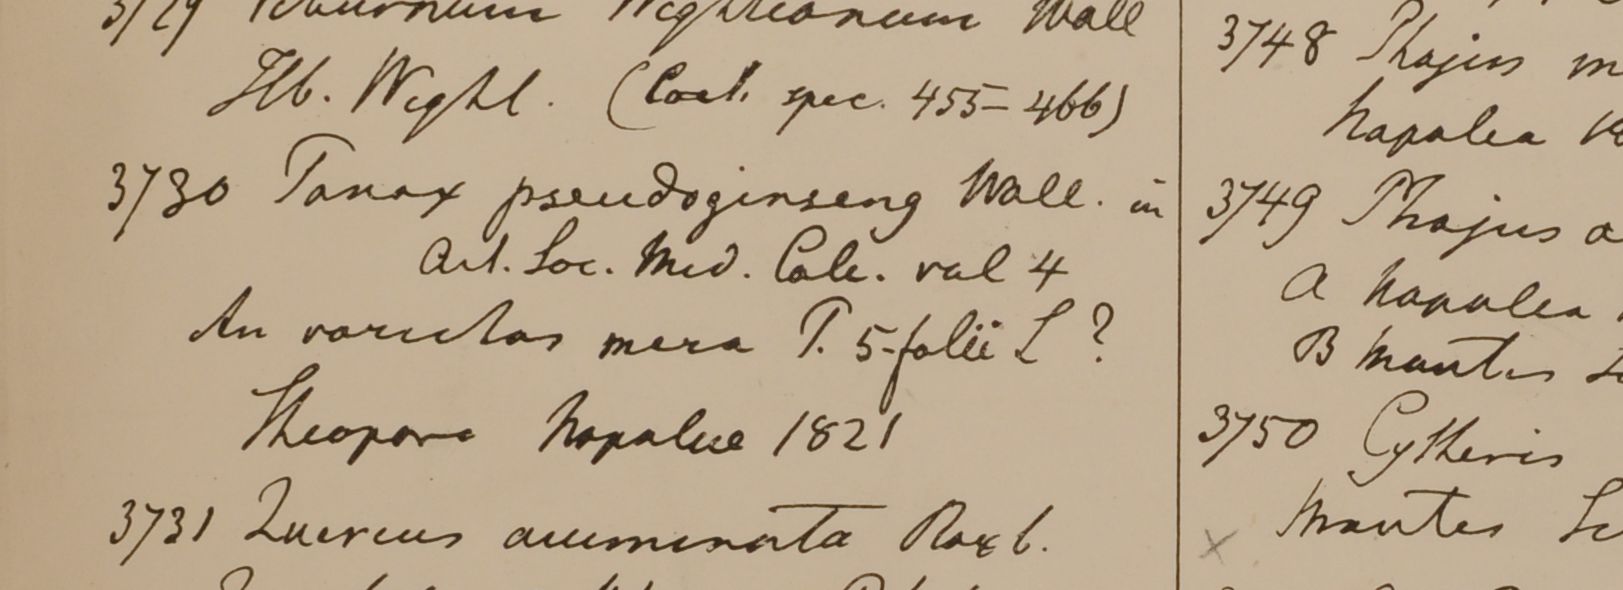 3729 Viburnum Wightianum Wall
Hb. Wight. (Coel. spec. 455-466)
3730 Panax pseudoginseng Wall. in
Act. Soc. Med. Calc. vol 4
An varietas mera P. 5-folii L ?
Sheopore Napalia 1821
3731 Quercus acuminata Roxb.
3748 Phajus
Napalea
3749 Phajus a
A Napalea
B Montes
3750 Cytheris
Montes